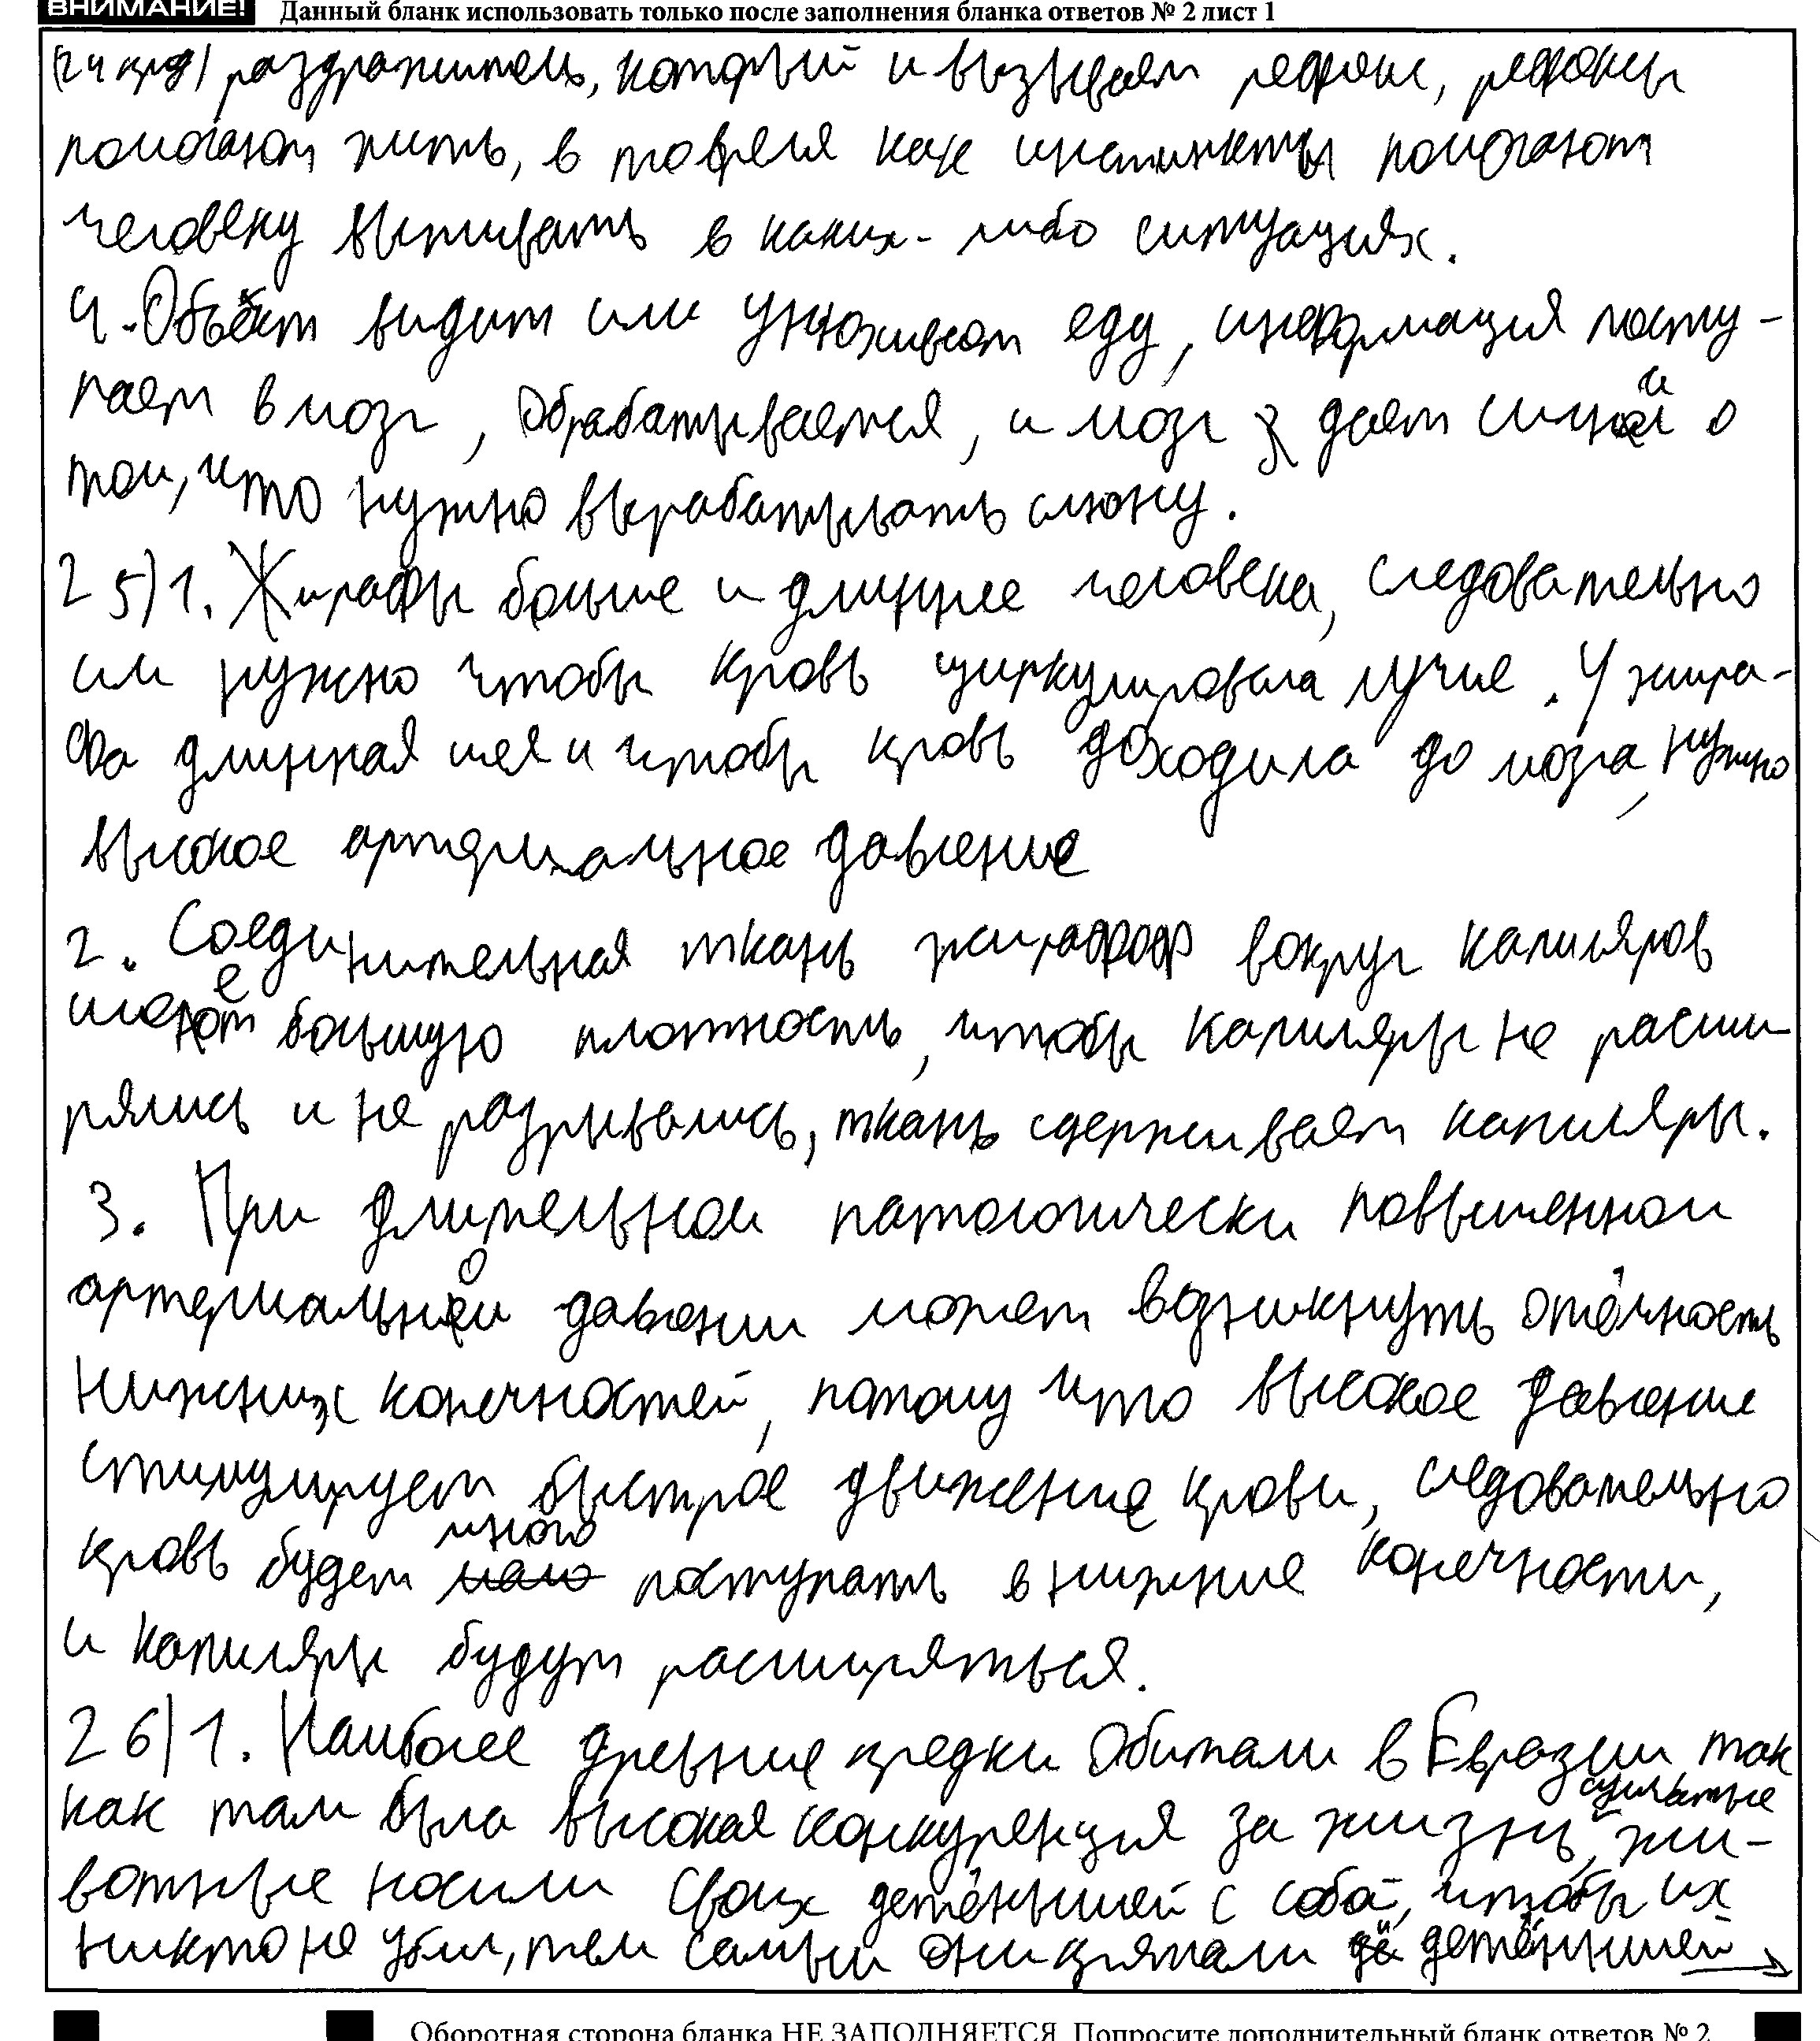 ВНИМАНИЕ! Данный бланк использовать только после заполнения бланка ответов № 2 лист 1
(24 прд) раздражитель, который и вызывает рефлекс, рефлексы
помогают жить, в то время как инстинкты помогают
человеку выживать в каких-либо ситуациях.
4. Объект видит или унюхивает еду, информация посту-
пает в мозг, обрабатывается, и мозг дает сигнал о
том, что нужно вырабатывать слюну.
25) 1. Жирафы больше и длиннее человека, следовательно
им нужно чтобы кровь циркулировала лучше. У жира-
фа длинная шея и чтобы кровь доходила до мозга, нужно
высокое артериальное давление
2. Соединительная ткань жирафов вокруг капиляров
имеет большую плотность, чтобы капиляры не расши
рялись и не разрывались, ткань сдерживает капиляры.
3. При длительном патологически повышенном
артериальном давлении может возникнуть отёчность
нижних конечностей, потому что высокое давление
стимулирует быстрое движение крови, следовательно
кровь будет много поступать в нижние конечности,
и капиляры будут расширяться.
26) 1. Наиболее древние предки обитали в Евразии так
как там была высокая конкуренция за жизнь, сумчатые жи-
вотные носили своих детёнышей с собой, чтобы их
никто не убил, тем самым они прятали детёнышей →
Оборотная сторона бланка НЕ ЗАПОЛНЯЕТСЯ. Попросите дополнительный бланк ответов № 2